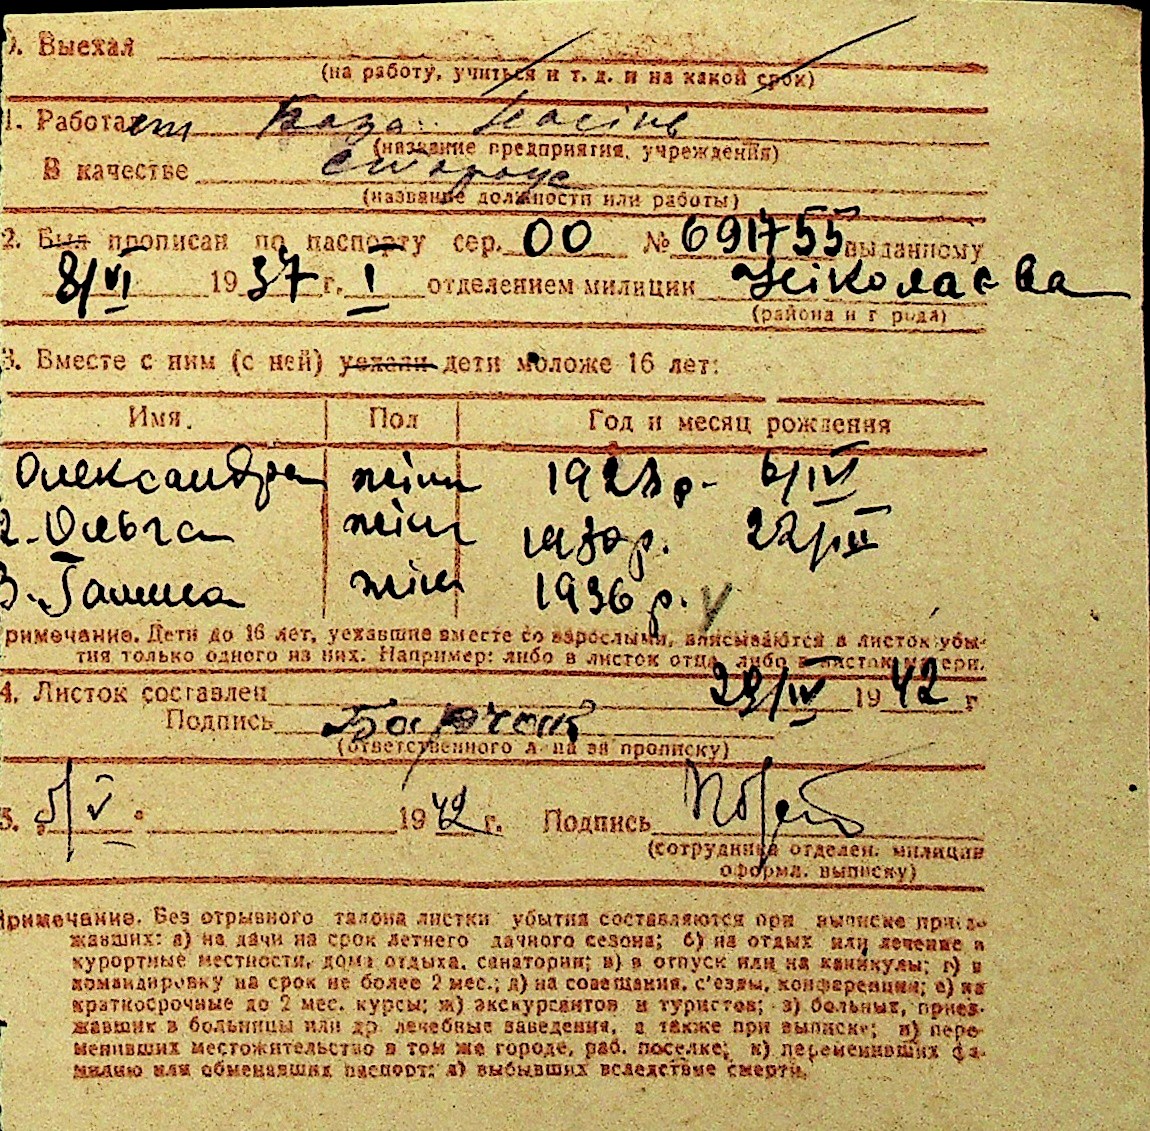 0. Выехал
(на работу, учиться и т. д. и на какой срок)
1. Работает База Насінь
(название предприятия, учреждения)
В качестве сторож
(название должности или работы)
2. Был прописан по паспорту сер. ОО № 691755 выданному
8/VI 1937 г. I отделением милиции Ніколаєва
(района и г рода)
3. Вместе с ним (с ней) уехали дети моложе 16 лет:
Имя. Пол Год и месяц рождения
Олександра жін 1928 р. 6/IV
2. Ольга жін 1930 р. 22/III
3. Галина жін 1936 р. V
римечание. Дети до 16 лет, уехавшие вместе со взрослыми, вписываются в листок убы-
тия только одного из них. Например: либо в листок отца, либо в листок матери.
4. Листок составлен 29/IV 1942 г
Подпись
(ответственного л-ца за прописку)
5. 5/V 1942 г. Подпись
(сотрудника отделен. милиции
оформл. выписку)
Примечание. Без отрывного талона листки убытия составляются при выписке приез-
жавших: а) на дачи на срок летнего дачного сезона; б) на отдых или лечение в
курортные местности, дома отдыха, санатории; в) в отпуск или на каникулы; г) в
командировку на срок не более 2 мес.; д) на совещания, с'езды, конференции; е) на
краткосрочные до 2 мес. курсы; ж) экскурсантов и туристов; з) больных, приез-
жавших в больницы или др лечебные заведения, а также при выписке; и) пере-
менивших местожительство в том же городе, раб. поселке; к) переменивших фа-
милию или обменявших паспорт; л) выбывших вследствие смерти.